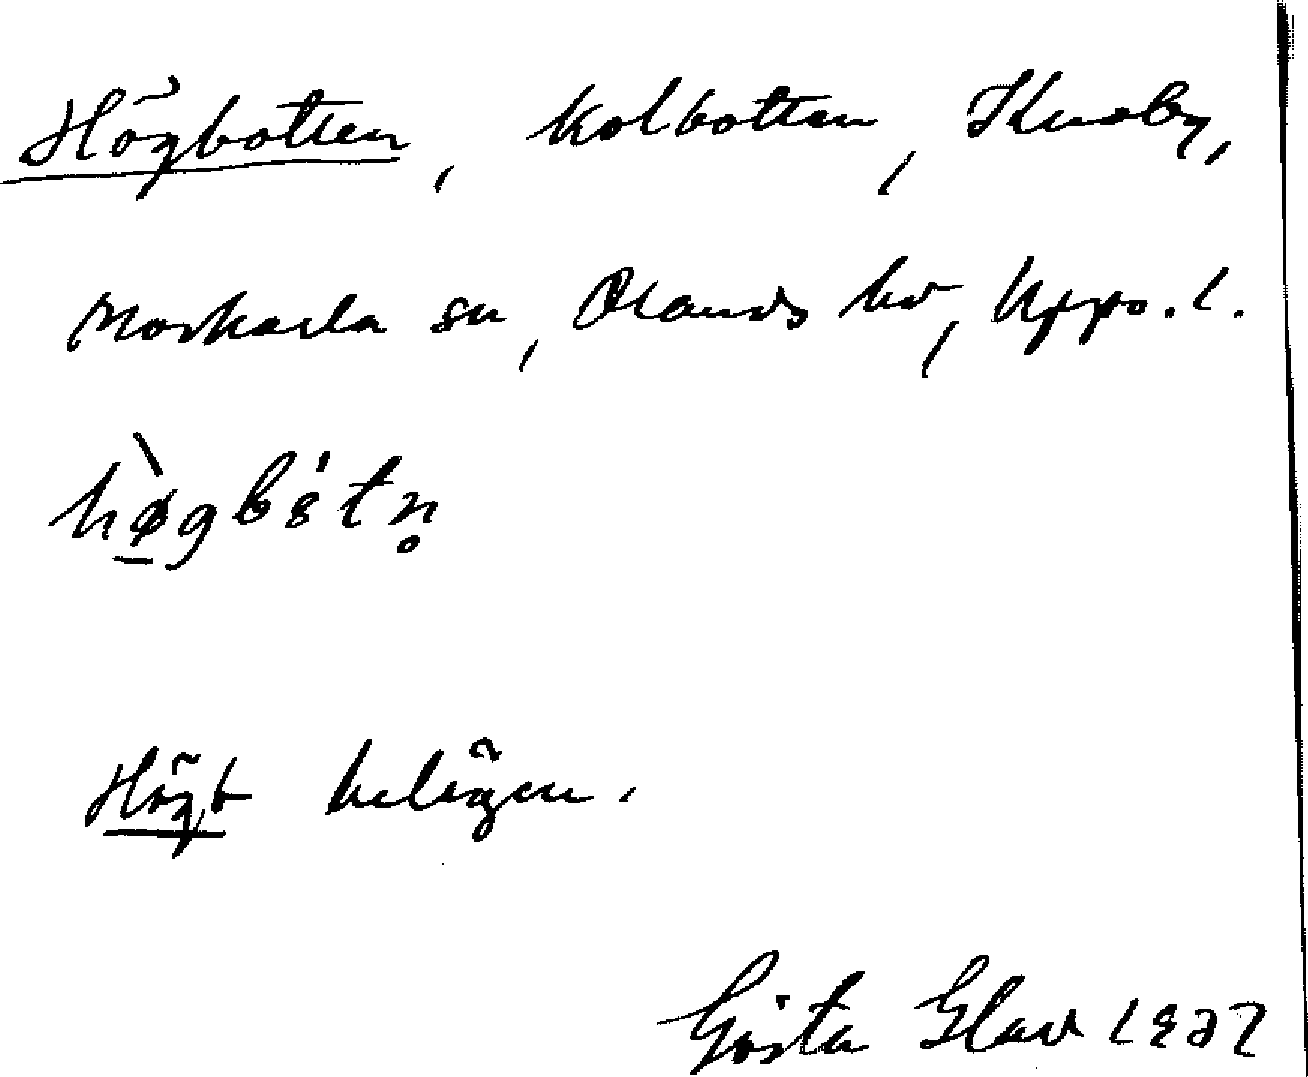 Högbotten, kolbotten, Husby,
Morkarla sn, Olands hd, Upps. l.
hø̀gbȯtn̥
Högt belägen.
Gösta Glav